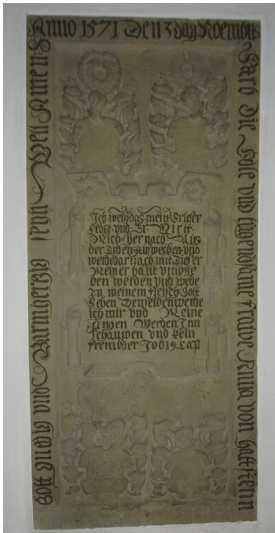 Anno 1571 Den 3 dag Noembris
Starb Die Edle und Thugentsame Frauwe Anna von
Gott Gnedig und Barmhertzig seyn Well Amen
Ich weys das mein Erloser
Lebt und Er Wirtt
Mich her nach Aus
der Erden Auwecken und
werde darnach mit Diser
Meiner haut umgeb
ben werden und werde
In meinem fleysch Gott
Sehen Denselben werde
ich mir und Meine
Augen Werden Inn
schauwen und kein
frembder Iob 19 Cap